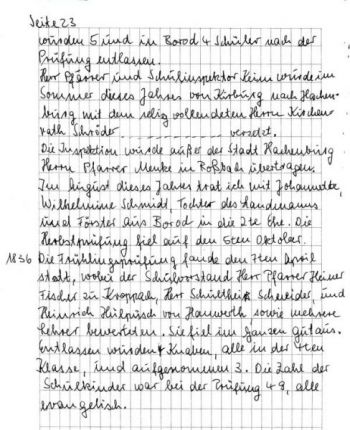 Seite 23
wurden 5 und in Borod 4 Schüler nach der
Prüfung entlassen.
Herr Pfarrer und Schulinspektor Keim wurde im
Sommer dieses Jahres von Kirburg nach Hachen-
burg mit dem selig vollendeten Herrn Kirchen-
rath Schröder versetzt.
Die Inspektion wurde außer der Stadt Hachenburg
Herrn Pfarrer Menke in Roßbach übertragen.
Im August dieses Jahres trat ich mit Johannette,
Wilhelmine Schmidt, Tochter des Landmanns
und Förster aus Borod in die 2te Ehe. Die
Herbstprüfung fiel auf den 6ten Oktober.
1836 Die Frühlingsprüfung fande den 7ten April
statt, wobei der Schulvorstand Herr Pfarrer Heiner
Fischer zu Kroppach, Herr Schultheis Schneider, und
Heinrich Hilpüsch von Hanwerth sowie mehrere
Lehrer bewerteten. Sie fiel im Ganzen gut aus.
Entlassen wurden 4 Knaben, alle in der 4ten
Klasse, und aufgenommen 3. Die Zahl der
Schulkinder war bei der Prüfung 49, alle
evangelisch.